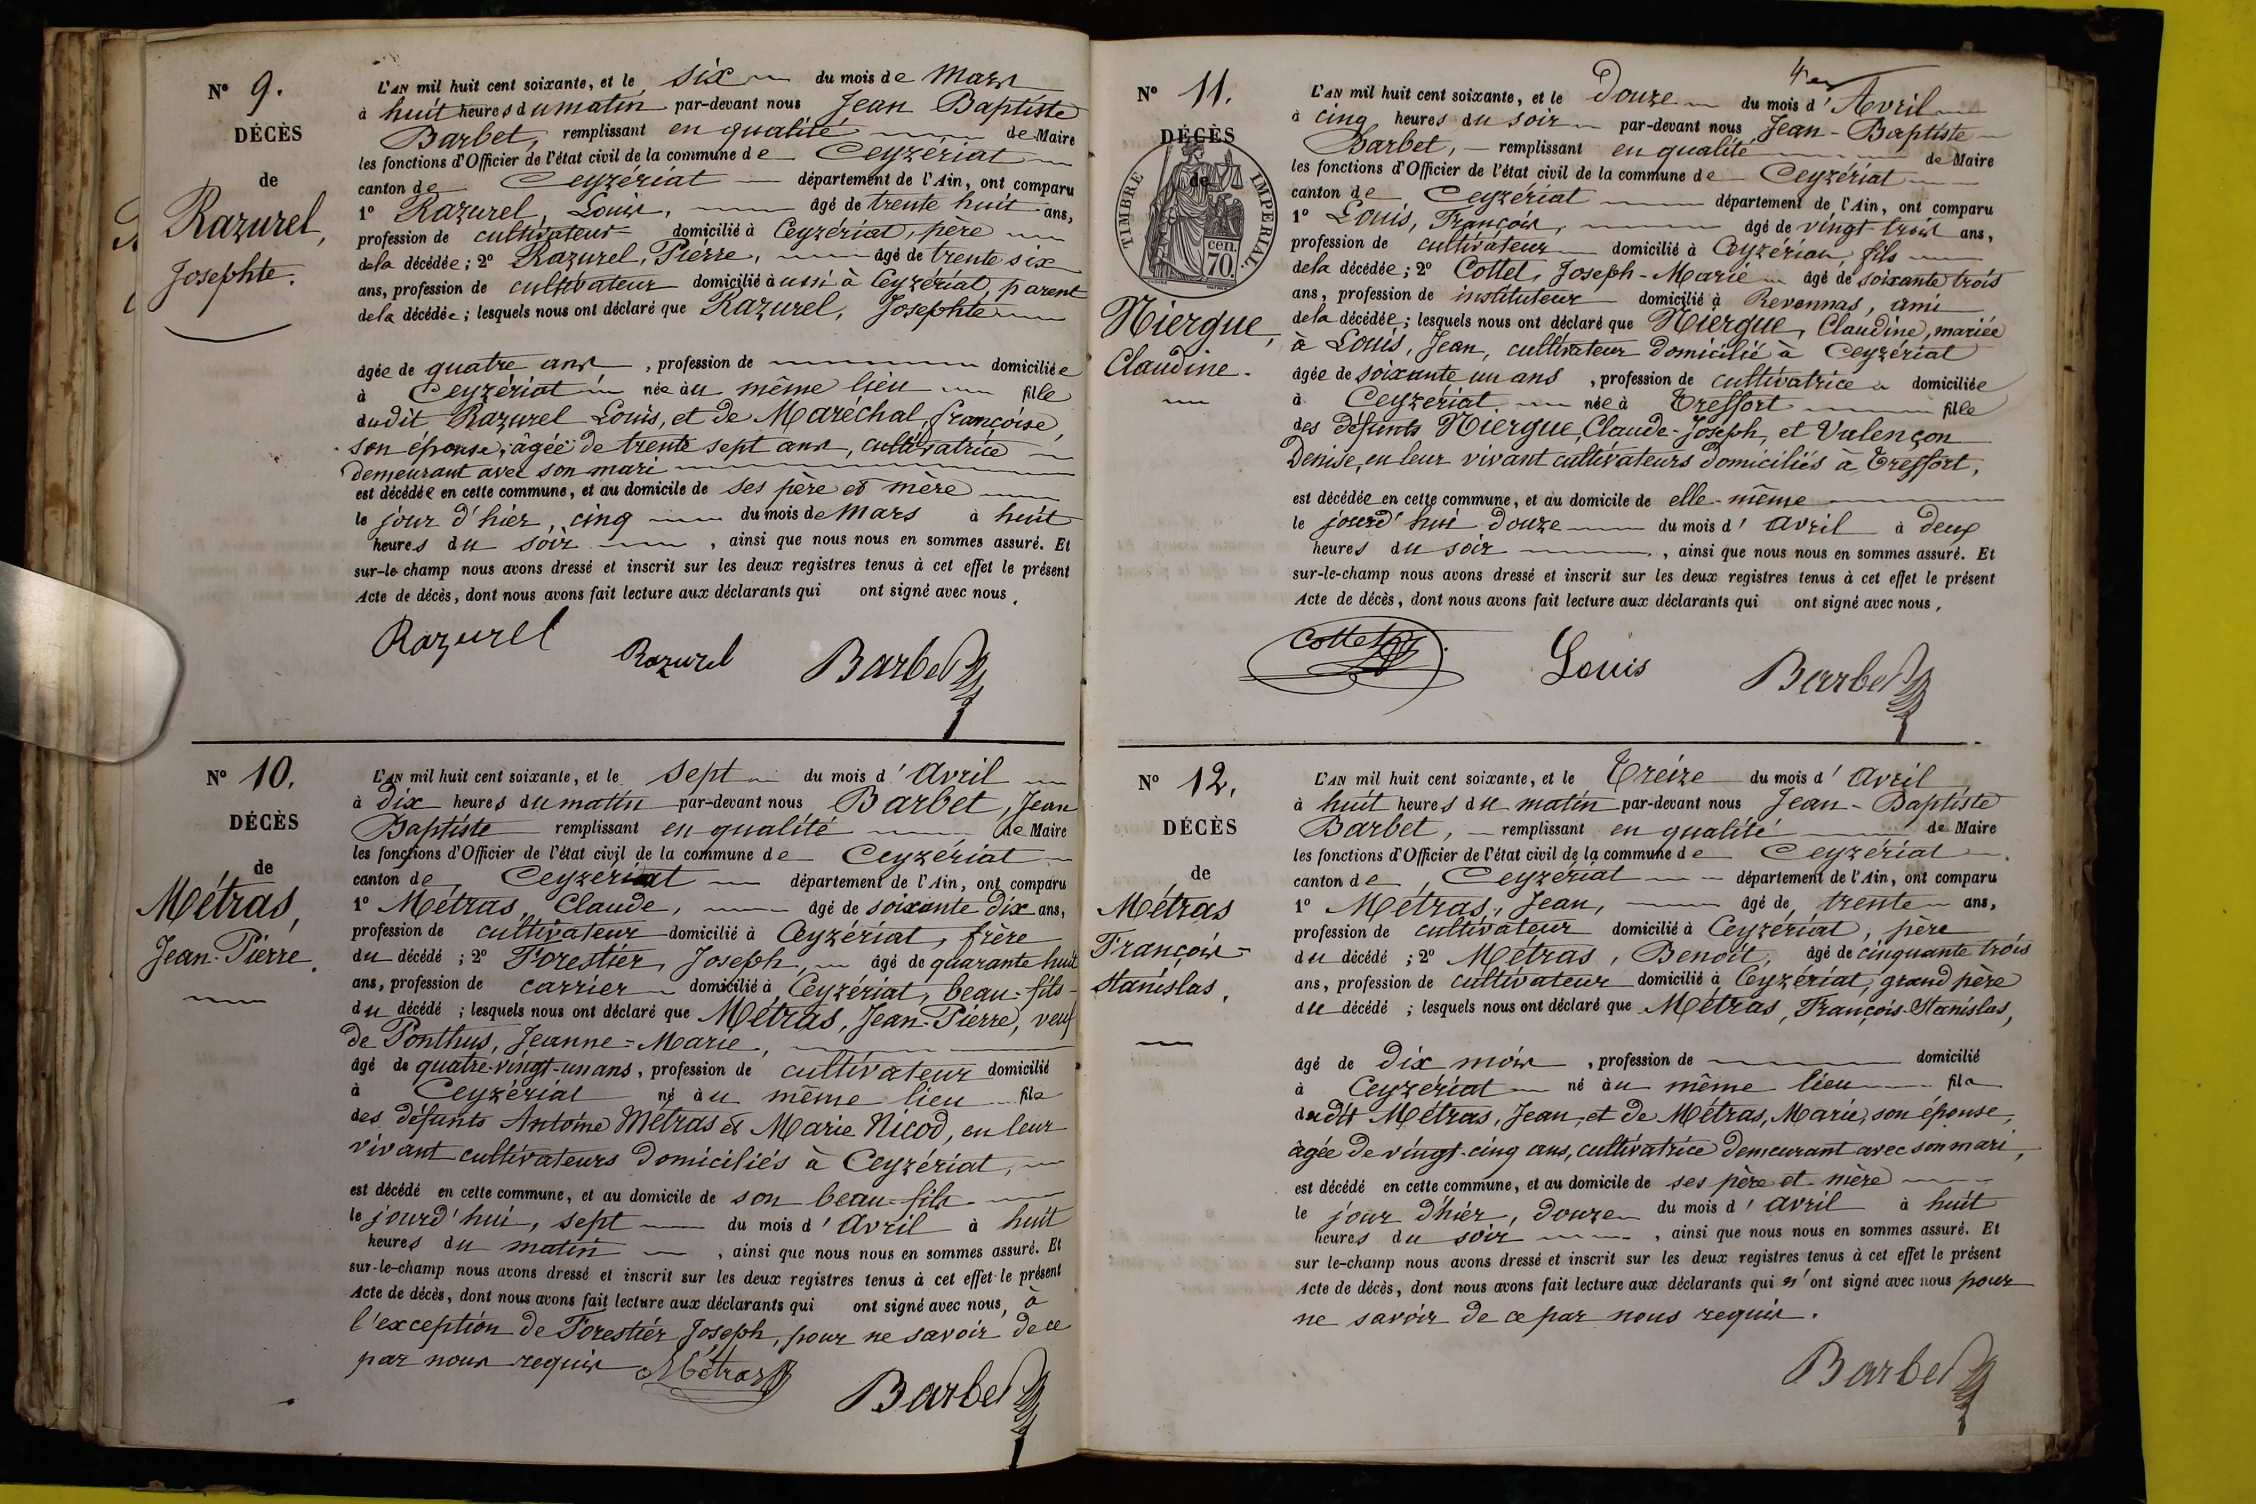 N° 9.
DÉCÈS
de
Razurel,
Josephte.
L'AN mil huit cent soixante, et le six du mois de Mars
à huit heures du matin par-devant nous Jean Baptiste
Barbet, remplissant en qualité de Maire
les fonctions d'Officier de l'état civil de la commune de Ceyzériat
canton de Ceyzériat département de l'Ain, ont comparu
1° Razurel, Louis, âgé de trente huit ans,
profession de cultivateur domicilié à Ceyzériat, père
de la décédée; 2° Razurel, Pierre, âgé de trente six
ans, profession de cultivateur domicilié aussi à Ceyzériat, parent
de la décédée; lesquels nous ont déclaré que Razurel, Josephte
âgée de quatre ans, profession de domiciliée
à Ceyzériat née au même lieu fille
dudit Razurel Louis, et de Maréchal, françoise,
son épouse, âgée de trente sept ans, cultivatrice
demeurant avec son mari
est décédée en cette commune, et au domicile de ses père et mère
le jour d'hier, cinq du mois de Mars à huit
heures du soir, ainsi que nous nous en sommes assuré. Et
sur-le-champ nous avons dressé et inscrit sur les deux registres tenus à cet effet le présent
Acte de décès, dont nous avons fait lecture aux déclarants qui ont signé avec nous.
Razurel Razurel Barbet
N° 10.
DÉCÈS
de
Métras,
Jean-Pierre.
L'AN mil huit cent soixante, et le sept du mois d'Avril
à dix heures du matin par-devant nous Barbet, Jean
Baptiste remplissant en qualité de Maire
les fonctions d'Officier de l'état civil de la commune de Ceyzériat
canton de Ceyzériat département de l'Ain, ont comparu
1° Métras, Claude, âgé de soixante dix ans,
profession de cultivateur domicilié à Ceyzériat, frère
du décédé; 2° Forestier, Joseph, âgé de quarante huit
ans, profession de carrier domicilié à Ceyzériat, beau-fils
du décédé; lesquels nous ont déclaré que Métras, Jean-Pierre, veuf
de Ponthus, Jeanne-Marie,
âgé de quatre-vingt-un ans, profession de cultivateur domicilié
à Ceyzériat né au même lieu fils
des défunts Antoine Métras et Marie Nicod, en leur
vivant cultivateurs domiciliés à Ceyzériat,
est décédé en cette commune, et au domicile de son beau-fils
le jourd'hui, sept du mois d'Avril à huit
heures du matin, ainsi que nous nous en sommes assuré. Et
sur-le-champ nous avons dressé et inscrit sur les deux registres tenus à cet effet le présent
Acte de décès, dont nous avons fait lecture aux déclarants qui ont signé avec nous, à
l'exception de Forestier Joseph, pour ne savoir de ce
par nous requis Métras
Barbet
N° 11.
DÉCÈS
de
TIMBRE IMPÉRIAL.
cen.
70.
Niergue,
Claudine.
L'AN mil huit cent soixante, et le Douze du mois d'Avril
à cinq heures du soir par-devant nous Jean-Baptiste
Barbet, remplissant en qualité de Maire
les fonctions d'Officier de l'état civil de la commune de Ceyzériat
canton de Ceyzériat département de l'Ain, ont comparu
1° Louis, François, âgé de vingt trois ans,
profession de cultivateur domicilié à Ceyzériat, fils
de la décédée; 2° Cottet, Joseph-Marie âgé de soixante trois
ans, profession de instituteur domicilié à Revonnas, ami
de la décédée; lesquels nous ont déclaré que Niergue, Claudine, mariée
à Louis, Jean, cultivateur domicilié à Ceyzériat
âgée de soixante un ans, profession de cultivatrice domiciliée
à Ceyzériat née à Treffort fille
des défunts Niergue, Claude-Joseph, et Valençon
Denise, en leur vivant cultivateurs domiciliés à Treffort,
est décédée en cette commune, et au domicile de elle-même
le jourd'hui douze du mois d'Avril à deux
heures du soir, ainsi que nous nous en sommes assuré. Et
sur-le-champ nous avons dressé et inscrit sur les deux registres tenus à cet effet le présent
Acte de décès, dont nous avons fait lecture aux déclarants qui ont signé avec nous,
Cottet Louis Barbet
N° 12.
DÉCÈS
de
Métras
François-
stanislas.
L'AN mil huit cent soixante, et le Treize du mois d'Avril
à huit heures du matin par-devant nous Jean-Baptiste
Barbet, remplissant en qualité de Maire
les fonctions d'Officier de l'état civil de la commune de Ceyzériat
canton de Ceyzériat département de l'Ain, ont comparu
1° Métras, Jean, âgé de trente ans,
profession de cultivateur domicilié à Ceyzériat, père
du décédé; 2° Métras, Benoît, âgé de cinquante trois
ans, profession de cultivateur domicilié à Ceyzériat, grand père
du décédé; lesquels nous ont déclaré que Métras, François-Stanislas,
âgé de dix mois, profession de domicilié
à Ceyzériat né au même lieu fils
dudit Métras, Jean, et de Métras, Marie, son épouse,
âgée de vingt-cinq ans, cultivatrice demeurant avec son mari,
est décédé en cette commune, et au domicile de ses père et mère
le jour d'hier, douze du mois d'Avril à huit
heures du soir, ainsi que nous nous en sommes assuré. Et
sur le-champ nous avons dressé et inscrit sur les deux registres tenus à cet effet le présent
Acte de décès, dont nous avons fait lecture aux déclarants qui n'ont signé avec nous pour
ne savoir de ce par nous requis.
Barbet